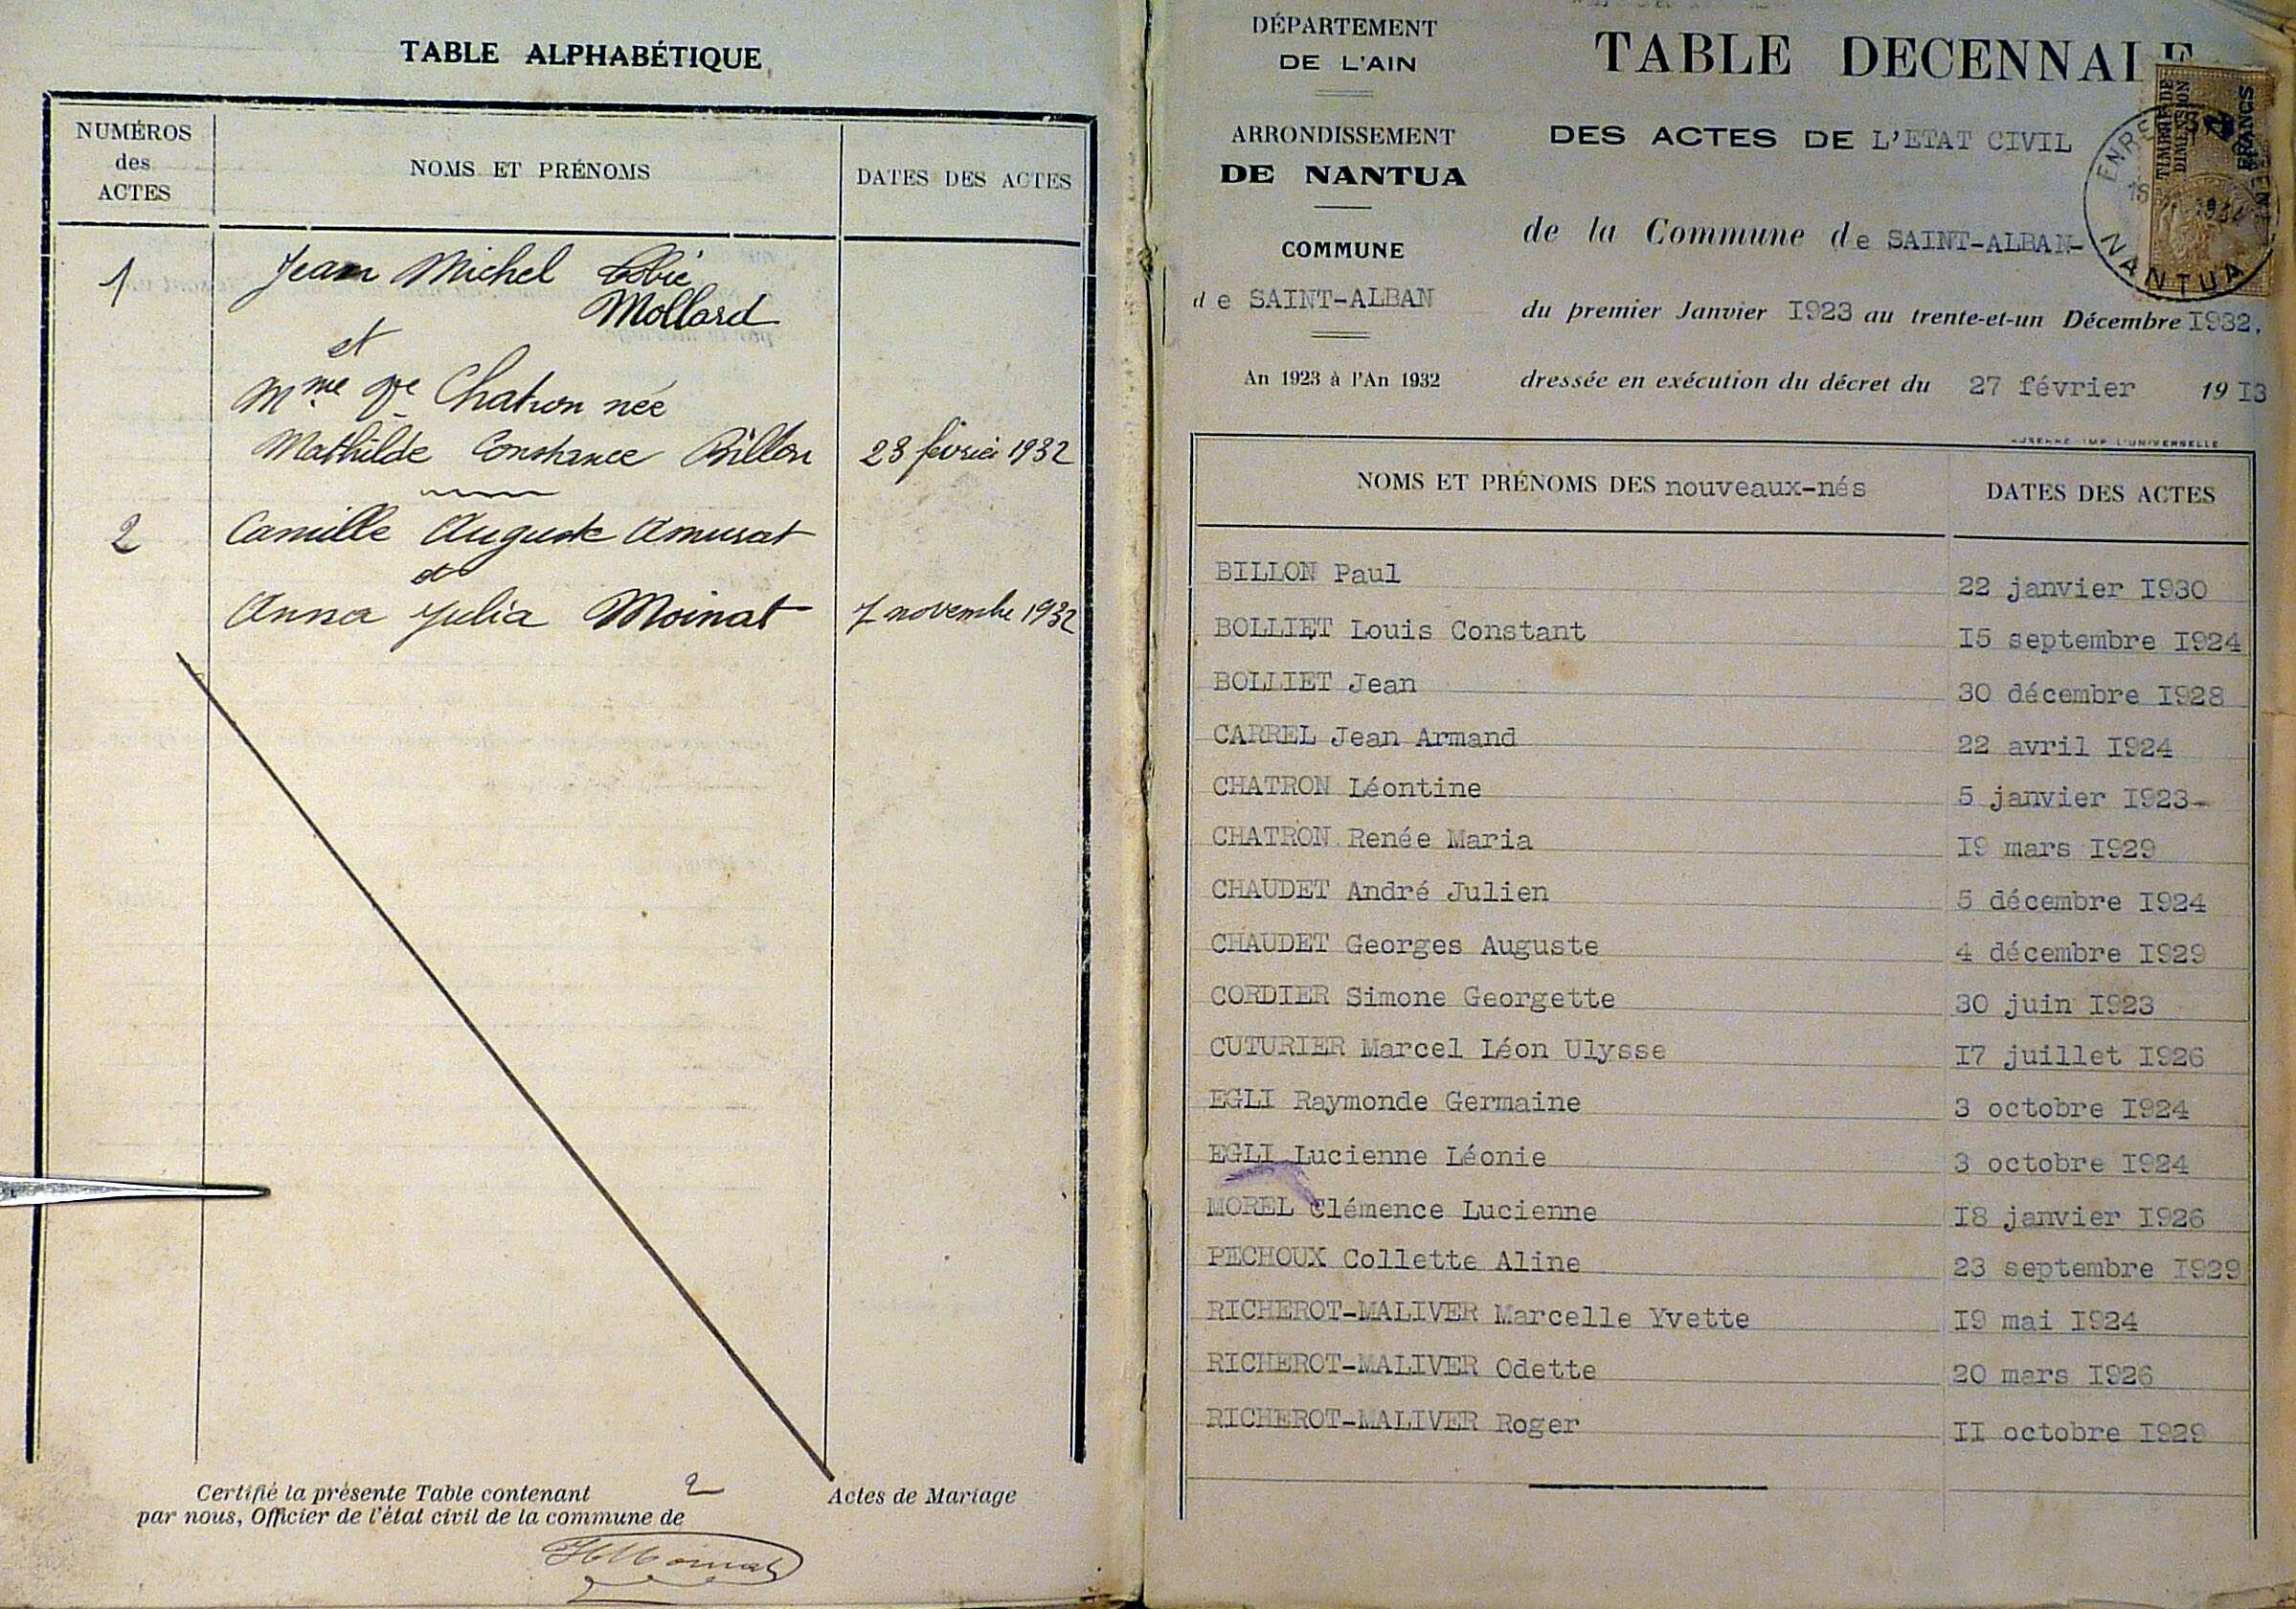 TABLE ALPHABÉTIQUE
NUMÉROS
des
ACTES
NOMS ET PRÉNOMS
DATES DES ACTES
1
Jean Michel Tobie
Mollard
et
Mme Vve Chatron née
Mathilde Constance Billon
23 février 1932
2
Camille Auguste Amusat
et
Anna Julia Moinat
7 novembre 1932
Certifié la présente Table contenant 2 Actes de Mariage
par nous, Officier de l'état civil de la commune de
HMoinat
DÉPARTEMENT
DE L'AIN
ARRONDISSEMENT
DE NANTUA
COMMUNE
de SAINT-ALBAN
An 1923 à l'An 1932
TABLE DECENNALE
DES ACTES DE L'ETAT CIVIL
de la Commune de SAINT-ALBAN-
du premier Janvier I923 au trente-et-un Décembre I932.
dressée en exécution du décret du 27 février 19I3
TIMBRE DE
DIMENSION
FRANCS
NANTUA
IMP. L'UNIVERSELLE
NOMS ET PRÉNOMS DES nouveaux-nés
DATES DES ACTES
BILLON Paul
22 janvier I930
BOLLIET Louis Constant
I5 septembre I924
BOLLIET Jean
30 décembre I928
CARREL Jean Armand
22 avril I924
CHATRON Léontine
5 janvier I923-
CHATRON Renée Maria
I9 mars I929
CHAUDET André Julien
5 décembre I924
CHAUDET Georges Auguste
4 décembre I929
CORDIER Simone Georgette
30 juin I923
CUTURIER Marcel Léon Ulysse
I7 juillet I926
EGLI Raymonde Germaine
3 octobre I924
EGLI Lucienne Léonie
3 octobre I924
MOREL Clémence Lucienne
I8 janvier I926
PECHOUX Collette Aline
23 septembre I929
RICHEROT-MALIVER Marcelle Yvette
I9 mai I924
RICHEROT-MALIVER Odette
20 mars I926
RICHEROT-MALIVER Roger
II octobre I929